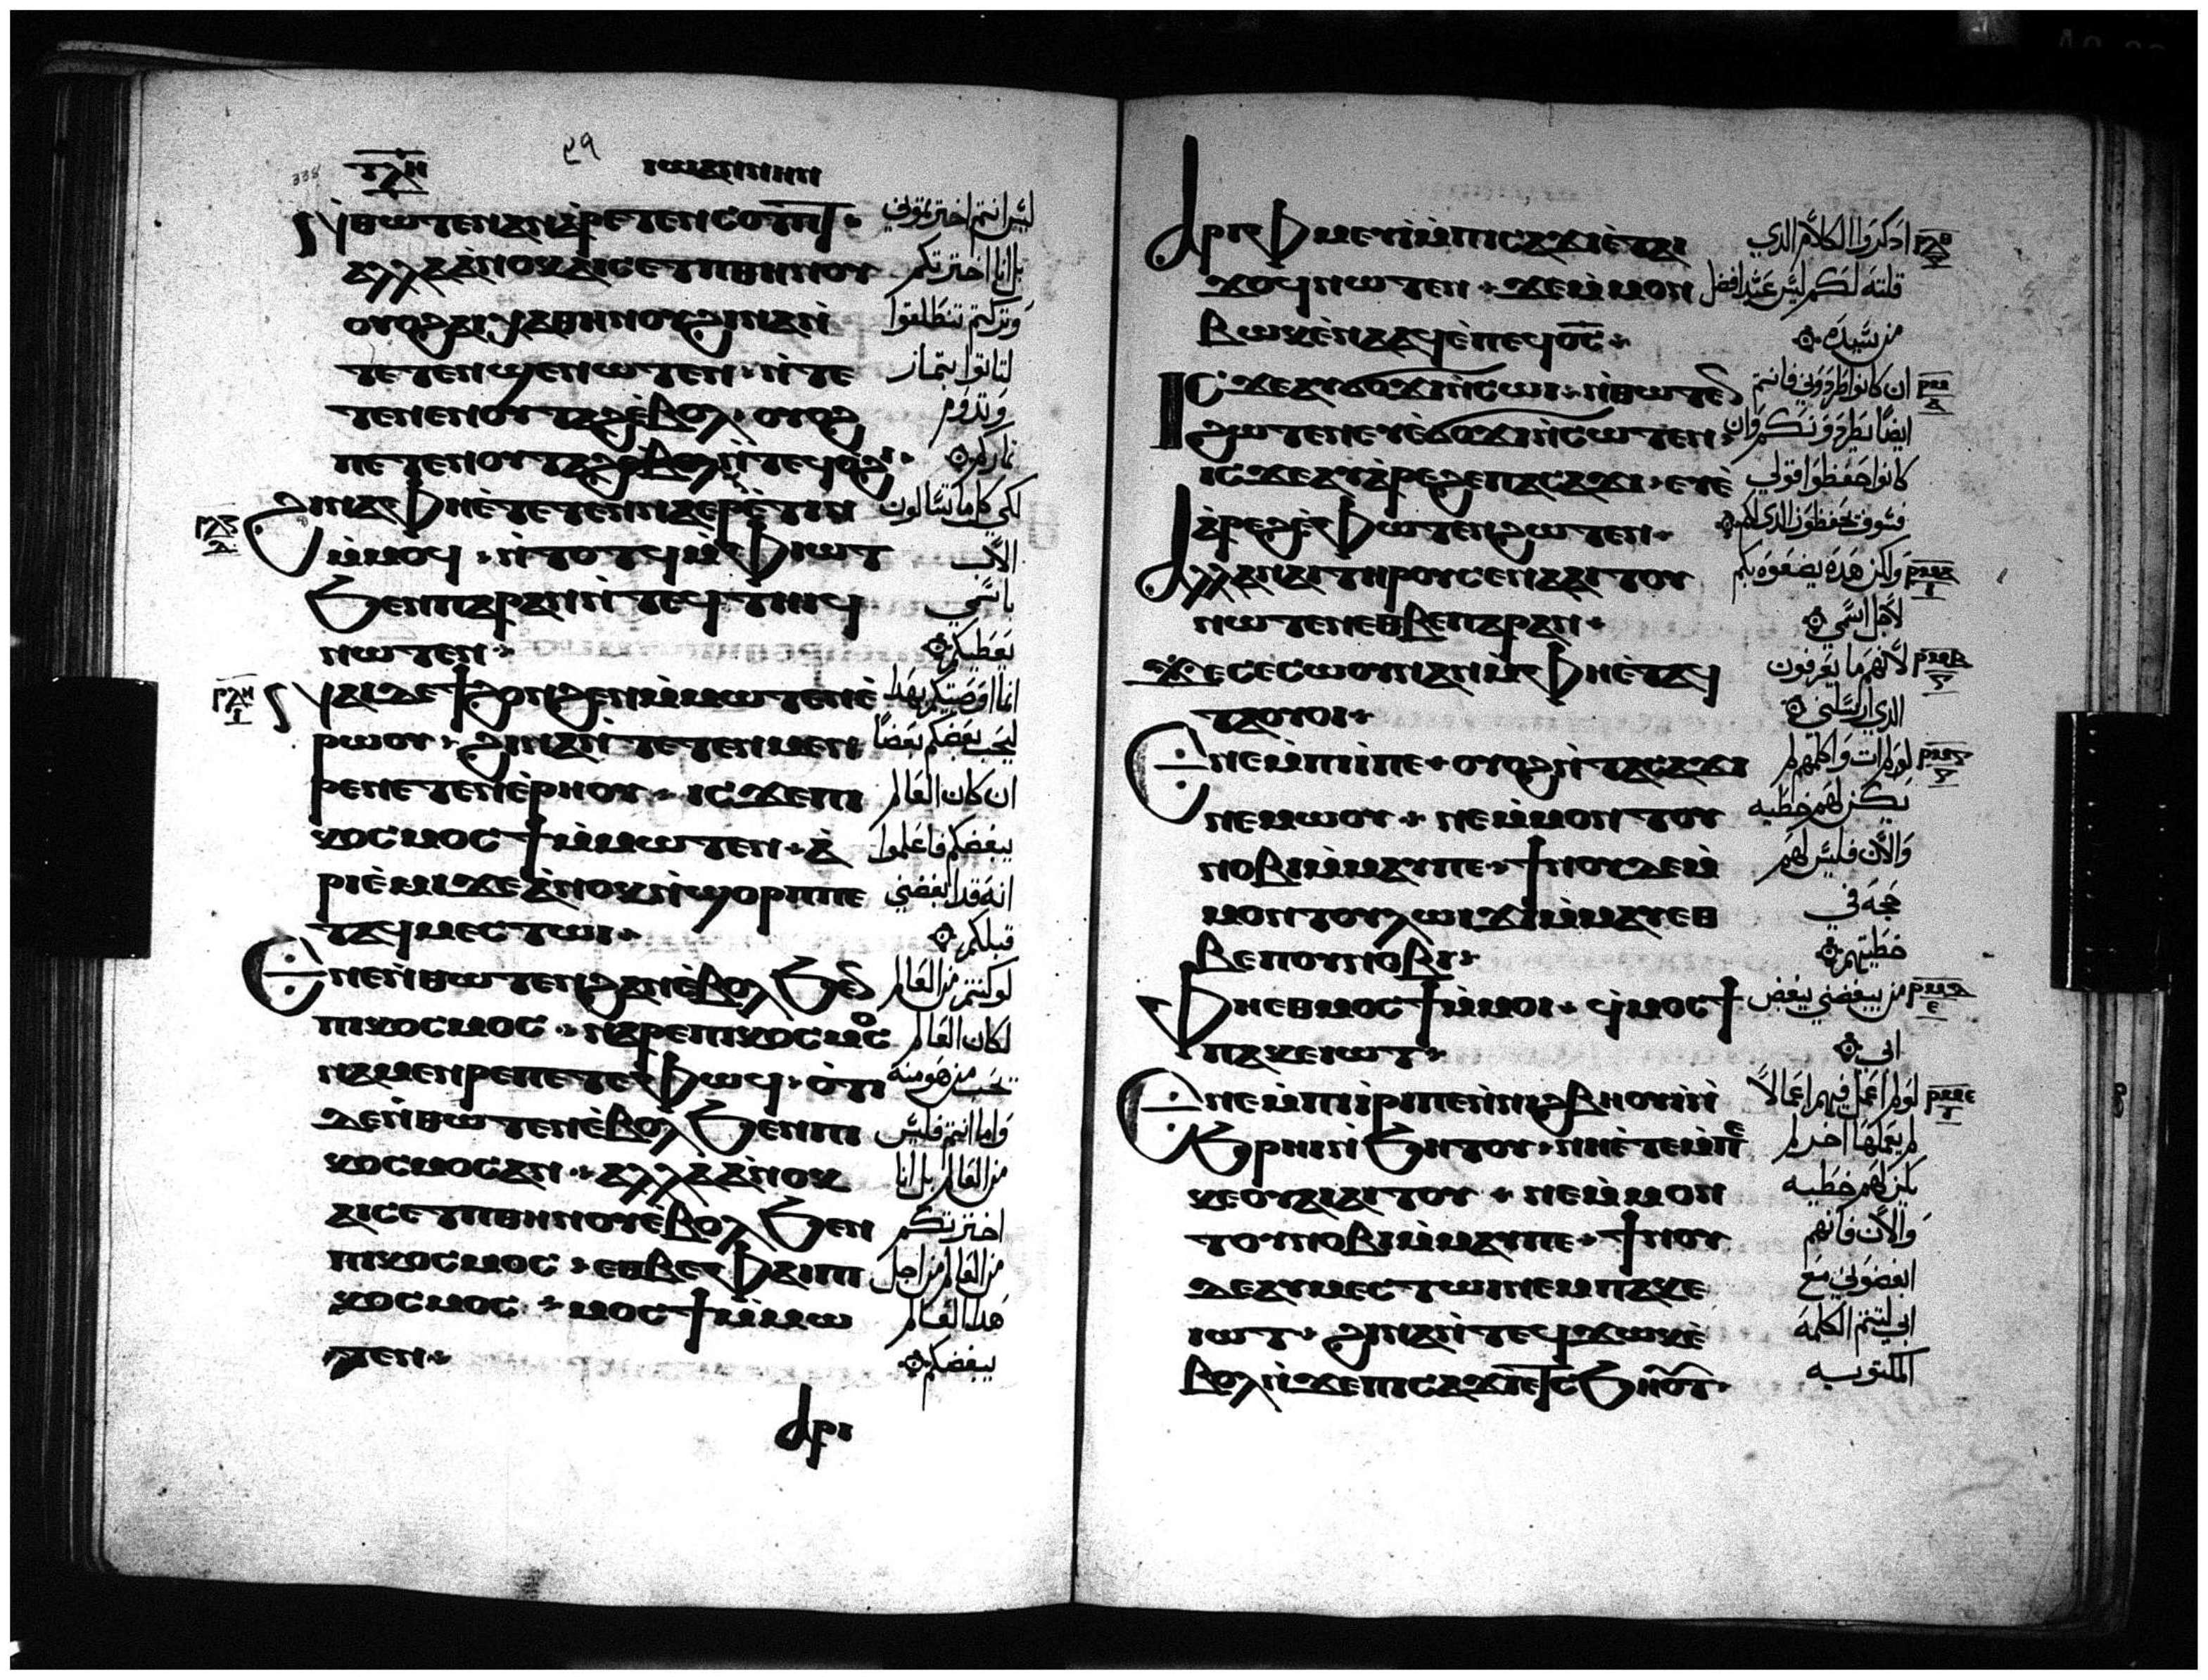 ⲧⲗⲏ ⲓⲱⲁⲛⲛⲏⲛ
ⲛ̀ⲑⲱⲧⲉⲛ ⲁⲛ ⲁ̀ⲣⲉⲧⲉⲛⲥⲟⲧⲡⲧ ليس انتم اخترتموني
ⲁⲗⲗⲁ ⲁ̀ⲛⲟⲕ ⲁⲓⲥⲉⲧⲡ ⲑⲏⲛⲟⲩ بل انا اخترتكم
ⲟⲩⲟϩ ⲁⲓⲭⲁ ⲑⲏⲛⲟⲩ ϩⲓⲛⲁ ⲛ̀ وتركتم تنطلقوا
ⲧⲉⲧⲉⲛϣⲉⲛⲱⲧⲉⲛ ⲛ̀ⲧⲉ لتاتوا بثمار
ⲧⲉⲛⲉⲛⲟⲩⲧⲁϩ ⲉ̀ⲃⲟⲗ ⲟⲩⲟϩ وتدوم
ⲡⲉⲧⲉⲛⲟⲩⲧⲁϩ ⲛ̀ⲧⲉϥⲟ̀ϩⲓ ثماركم
ϩⲓⲛⲁ ⲫⲏⲉ̀ⲧⲉⲧⲉⲛⲛⲁⲉⲣⲉ̀ⲧⲓⲛ لكي كل ما تسالون
ⲙ̀ⲙⲟϥ ⲛ̀ⲧⲟⲧϥ ⲙ̀ⲫⲓⲱⲧ الاب
ϧⲉⲛ ⲡⲁⲣⲁⲛ ⲛ̀ⲧⲉϥⲧⲏⲓϥ باسمي
ⲛⲱⲧⲉⲛ يعطيكم
ⲛⲁⲓ ⲇⲉ ϯϩⲟⲛϩⲉⲛ ⲙ̀ⲙⲱⲧⲉⲛ ⲉ̀ انما اوصيتكم بهذا
ⲣⲱⲟⲩ ϩⲓⲛⲁ ⲛ̀ⲧⲉⲧⲉⲛⲙⲉⲛ ليحب بعضكم بعضا
ⲣⲉ ⲛⲉⲧⲉⲛⲉ̀ⲣⲏⲟⲩ ⲓⲥϫⲉ ⲡⲓ ان كان العالم
ⲕⲟⲥⲙⲟⲥ ⲙⲟⲥϯ ⲙ̀ⲙⲱⲧⲉⲛ ⲁ̀ يبغضكم فاعلموا
ⲣⲓⲉ̀ⲙⲓ ϫⲉ ⲁ̀ⲛⲟⲕ ⲛ̀ϣⲟⲣⲡ ⲡⲉ انه قد ابغضني
ⲧⲁϥⲙⲉⲥⲧⲱⲓ قبلكم
ⲉⲛⲉ ⲛ̀ⲑⲱⲧⲉⲛ ϩⲁⲛⲉ̀ⲃⲟⲗ ϧⲉⲛ لو كنتم من العالم
ⲡⲓⲕⲟⲥⲙⲟⲥ ⲛⲁⲣⲉ ⲡⲓⲕⲟⲥⲙⲟⲥ لكان العالم
ⲛⲁⲙⲉⲛⲣⲉ ⲡⲉⲧⲉ ⲫⲱϥ ⲟ̀ⲧⲓ يحب من هو منه
ⲇⲉ ⲛ̀ⲑⲱⲧⲉⲛ ⲉ̀ⲃⲟⲗ ϧⲉⲛ ⲡⲓ واما انتم فليس
ⲕⲟⲥⲙⲟⲥ ⲁⲛ ⲁⲗⲗⲁ ⲁ̀ⲛⲟⲕ من العالم بل انا
ⲁⲓⲥⲉⲧⲡ ⲑⲏⲛⲟⲩ ⲉ̀ⲃⲟⲗ ϧⲉⲛ اخترتكم
ⲡⲓⲕⲟⲥⲙⲟⲥ ⲉⲑⲃⲉ ⲫⲁⲓ ⲡⲓ من العالم من اجل
ⲕⲟⲥⲙⲟⲥ ⲙⲟⲥϯ ⲙ̀ⲙⲱ هذا العالم
ⲧⲉⲛ يبغضكم
ⲁⲣⲓ
ⲁⲣⲓⲫⲙⲉⲩⲓ̀ ⲙ̀ⲡⲓⲥⲁϫⲓ ⲉ̀ⲧⲁⲓ اذكروا الكلام الذي ⲣⲗⲑ
ϫⲟϥ ⲛⲱⲧⲉⲛ ϫⲉ ⲙ̀ⲙⲟⲛ قلته لكم ليس عبد افضل
ⲃⲱⲕ ⲉ̀ⲛⲁⲁϥ ⲉ̀ⲡⲉϥⲟ̅ⲥ̅ من سيده
ⲓⲥϫⲉ ⲁⲩϭⲟϫⲓ ⲛ̀ⲥⲱⲓ ⲛ̀ⲑⲱⲧⲉⲛ ان كانوا طردوني فانتم ⲣⲙ
ϩⲱⲧⲉⲛ ⲉⲩⲉ̀ϭⲟϫⲓ ⲛ̀ⲥⲱⲧⲉⲛ ايضا يطردونكم وان
ⲓⲥϫⲉ ⲁⲩⲁ̀ⲣⲉϩ ⲉⲡⲁⲥⲁϫⲓ ⲉⲩⲉ̀ كانوا حفظوا قولي
ⲁ̀ⲣⲉϩ ⲉ̀ⲫⲱⲧⲉⲛ ϩⲱⲧⲉⲛ فسوف يحفظون الذي لكم
ⲁⲗⲗⲁ ⲛⲁⲓ ⲧⲏⲣⲟⲩ ⲥⲉⲛⲁⲁⲓⲧⲟⲩ ولكن هذه يصنعوه بكم ⲣⲙⲁ
ⲛⲱⲧⲉⲛ ⲉⲑⲃⲉ ⲡⲁⲣⲁⲛ لاجل اسمي
ϫⲉ ⲥⲉⲥⲱⲟⲩⲛ ⲁⲛ ⲙ̀ⲫⲏⲉ̀ⲧⲁϥ لانهم ما يعرفون ⲣⲙⲃ
ⲧⲁⲟⲩⲟⲓ الذي ارسلني
ⲉⲛⲉ ⲙ̀ⲡⲓⲓ̀ ⲡⲉ ⲟⲩⲟϩ ⲛ̀ⲧⲁⲥⲁϫⲓ لو لم ات واكلمهم لم ⲣⲙⲅ
ⲛⲉⲙⲱⲟⲩ ⲛⲉ ⲙ̀ⲙⲟⲛ ⲧⲟⲩ يكن لهم خطيه
ⲛⲟⲃⲓ ⲙ̀ⲙⲁⲩ ⲡⲉ ϯⲛⲟⲩ ⲇⲉ ⲙ̀ والان فليس لهم
ⲙⲟⲛ ⲧⲟⲩ ⲗⲱⲓϫⲓ ⲙ̀ⲙⲁⲩ ⲉⲑ حجه في
ⲃⲉ ⲡⲟⲩⲛⲟⲃⲓ خطيتهم
ⲫⲏ ⲉⲑⲙⲟⲥϯ ⲙ̀ⲙⲟⲓ ϥ̀ⲙⲟⲥϯ من يبغضني يبغض ⲣⲙⲇ
ⲡⲁⲕⲉⲓⲱⲧ ابي
ⲉⲛⲉ ⲙ̀ⲡⲓⲓ̀ⲣⲓ ⲡⲉ ⲛ̀ⲛⲓϩⲃⲏⲟⲩⲓ̀ ⲛ̀ لو لم اعمل فيهم اعمالا ⲣⲙⲉ
ϧⲣⲏⲓ ⲛ̀ϧⲏⲧⲟⲩ ⲛⲏ ⲉ̀ⲧⲉ ⲙ̀ⲡⲉ لم يعملها اخر لم
ⲕⲉⲟⲩⲁⲓ ⲁⲓⲧⲟⲩ ⲛⲉ ⲙ̀ⲙⲟⲛ يكن لهم خطيه
ⲧⲟⲩ ⲛⲟⲃⲓ ⲙ̀ⲙⲁⲩ ⲡⲉ ϯⲛⲟⲩ والان فانهم
ⲇⲉ ⲁⲩⲙⲉⲥⲧⲱⲓ ⲛⲉⲙ ⲡⲁⲕⲉ ابغضوني مع
ⲓⲱⲧ ϩⲓⲛⲁ ⲛ̀ⲧⲉϥϫⲱⲕ ⲉ̀ ابي لتتم الكلمه
ⲃⲟⲗ ⲛ̀ϫⲉ ⲡⲓⲥⲁϫⲓ المكتوبه